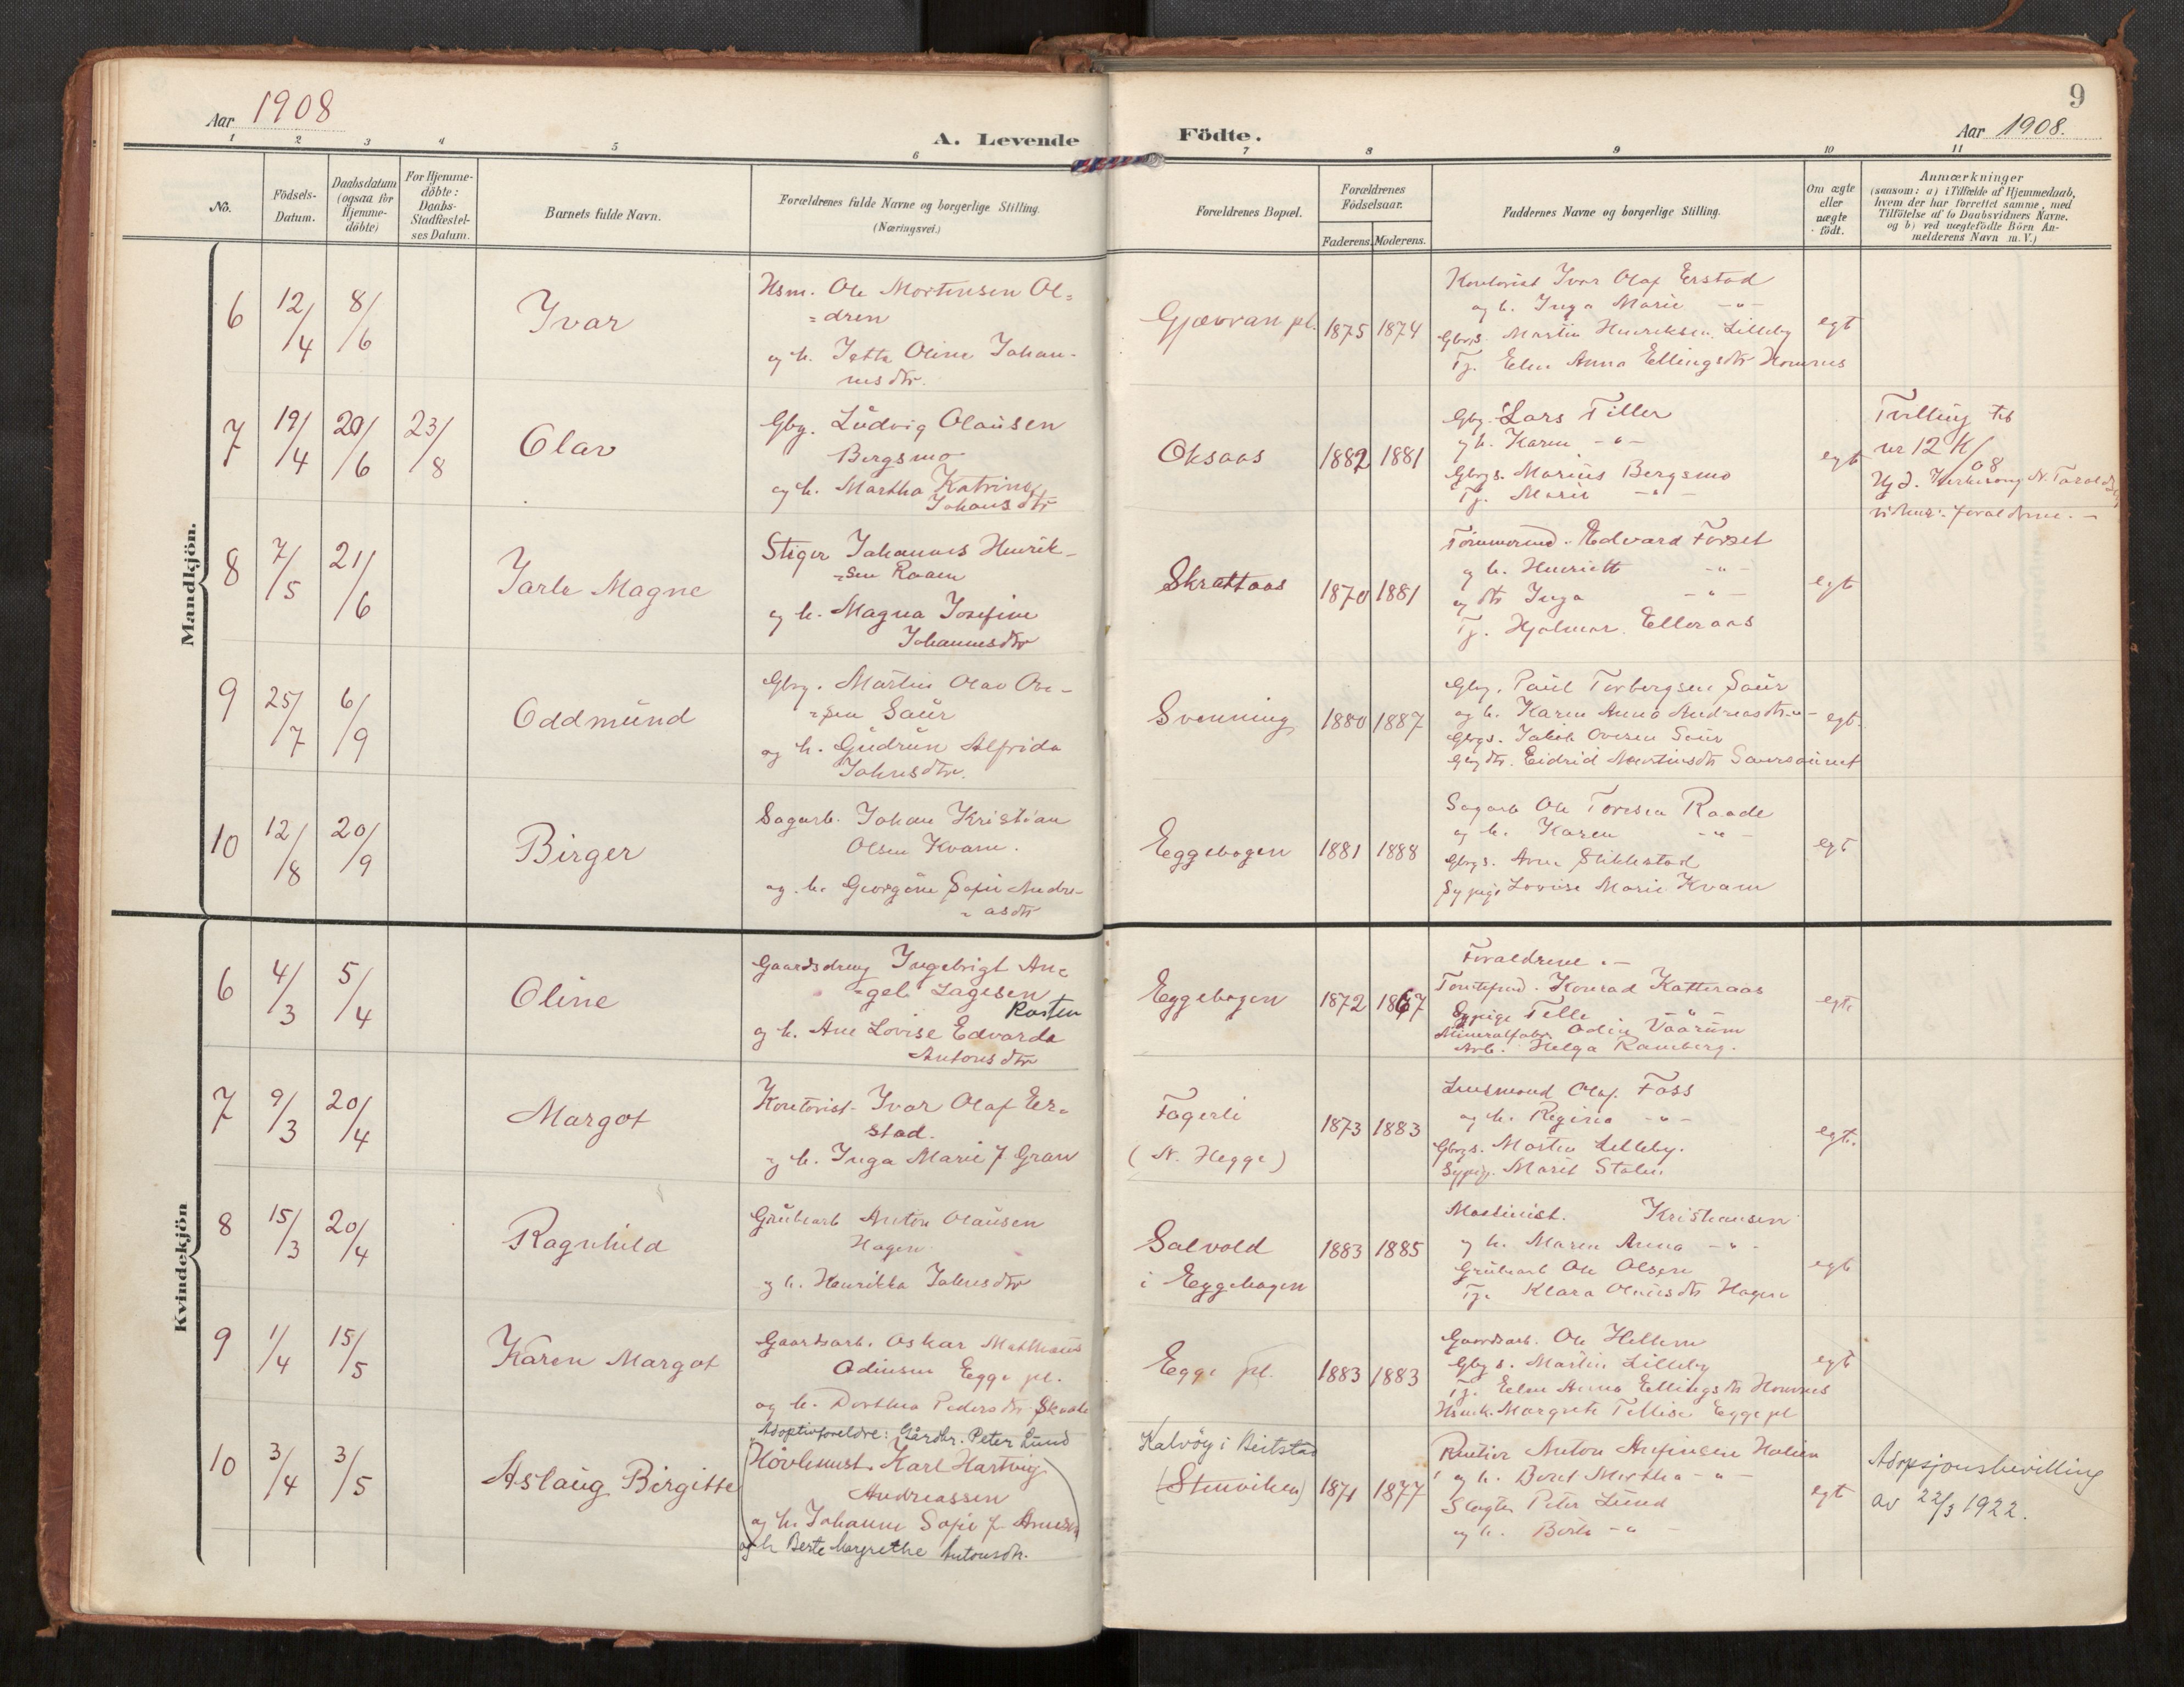 Aar 1908
A. Levende
1 2 3 4 5 6
No.
Födsels-Datum.
Daabsdatum (ogsaa for Hjemme-döbte)
For Hjemme-döbte: Daabs-Stadfæstel-ses Datum.
Barnets fulde Navn.
Forældrenes fulde Navne og borgerlige Stilling.
(Næringsvei.)
Mandkjön.
6 12/4 8/6 Ivar
Hsm. Ole Mortensen Ol=
=dren
og h. Jette Oline Johan-
nesdtr.
7 19/4 20/6 23/8 Olav
Gbg. Ludvig Olausen
Bergsmo
og h. Martha Katrine
Johansdtr
8 7/5 21/6 Jarle Magne
Stiger Johannes Henrik-
=sen Raaen
og h. Magna Josefine
Johannesdtr
9 25/7 6/9 Oddmund
Gbg. Martin Olav Ove-
=sen Saur
og h. Gudrun Alfrida
Johnsdtr.
10 12/8 20/9 Birger
Sagarb. Johan Kristian
Olsen Kvam.
og h. Georgine Sofie Andre-
=asdtr
Kvindekjön
6 4/3 5/4 Oline
Gaardsdreng Ingebrigt An=
=gel Lagesen
Rosten
og h. Ane Lovise Edvarda
Antonsdtr
7 9/3 20/4 Margot
Kontorist Ivar Olaf Er=
stad.
og h. Inga Marie f Gran
8 15/3 20/4 Ragnhild
Grubearb Anton Olausen
Hagen
og h. Henrikka Johnsdtr
9 1/4 15/5 Karen Margot
Gaardsarb. Oskar Mathæus
Odinsen Egge pl.
og h. Dorthea Pedersdtr
10 3/4 3/5 Aslaug Birgitte
Adoptivforeldre: Gårdbr. Peter Lund
(Hövlemest. Karl Hartvig
Andreassen
og h. Johanne Sofie f. Arnesen)
og h Berte Margrethe Antonsdtr.
9
Födte.
Aar 1908.
7 8 9 10 11
Forældrenes Bopæl.
Forældrenes Födselsaar.
Faderens. Moderens.
Faddernes Navne og borgerlige Stilling.
Om ægte eller uægte födt.
Anmærkninger
(saasom: a) i Tilfælde af Hjemmedaab,
hvem der har forrettet samme, med
Tilföielse af to Daabsvidners Navne.
og b) ved uægtefödte Börn An-
melderens Navn m. V.)
Gjævran pl. 1875 1874
Kontorist Ivar Olaf Erstad
og h. Inga Marie -"-
Gbrs. Martin Henriksen Lilleby
Tj. Elen Anna Ellingsdtr Homnes
egt
Oksaas 1882 1881
Gbg. Lars Tiller
og h. Karen -"-
Gbgs. Marius Bergsmo
Tj. Marie -"-
egt
Tvilling til
nr 12 K/08
Hjd. Kirkesang. N.
vidner: forældrene.-
Skrattaas 1870 1881
Tömmermd. Edvard Forset
og h. Henriett -"-
og dtr Inga -"-
Tj. Hjalmar Elleraas
egt
Svenning 1880 1887
Gbg. Paul Torbergsen Saur
og h. Karen Anna Andreasdtr -"-
Gbgs. Jakob Ovesen Saur
Gbgdtr. Eidrid Martinsdtr Saursaunet
egt.
Eggebogen 1881 1888
Sagarb Ole Toresen Raade
og h. Karen -"-
Gbgs. Arne Stiklestad
Sypige Lovise Marie Kvam
egt
Eggebogen 1872 1867
Forældrene.-
Konrad Kattteraas
Sypige Telle -"-
Mineralfabr. Odin Vaarum
Arb. Helga Ramberg.
egt.
Fagerli
(N. Hegge) 1873 1883
Lensmand Olaf Foss
og h. Regina -"-
Gbgs. Morten Lilleby.
Sypig. Marit Stalu.
egt.
Salvold
i Eggebogen 1883 1885
Maskinist. Kristiansen
og h. Maren Anna -"-
Grubearb Ole Olsen
Tj. Klara Olausdtr Hagen
egt
Egge pl. 1883 1883
Gaardsarb. Ole Hellem
Gbgs. Martin Lilleby
Tj. Elen Anna Ellingsdtr Homnes
Margrete Tellise Egge pl
egt
Kalvöy i Beitstad
(Stenviken) 1871 1877
Rentier Anton Anfinsen Holien
og h. Beret Martha -"-
Slagter Peter Lund
og h. Berte -"-
egt
Adopsjonsbevilling
av 22/3 1922.